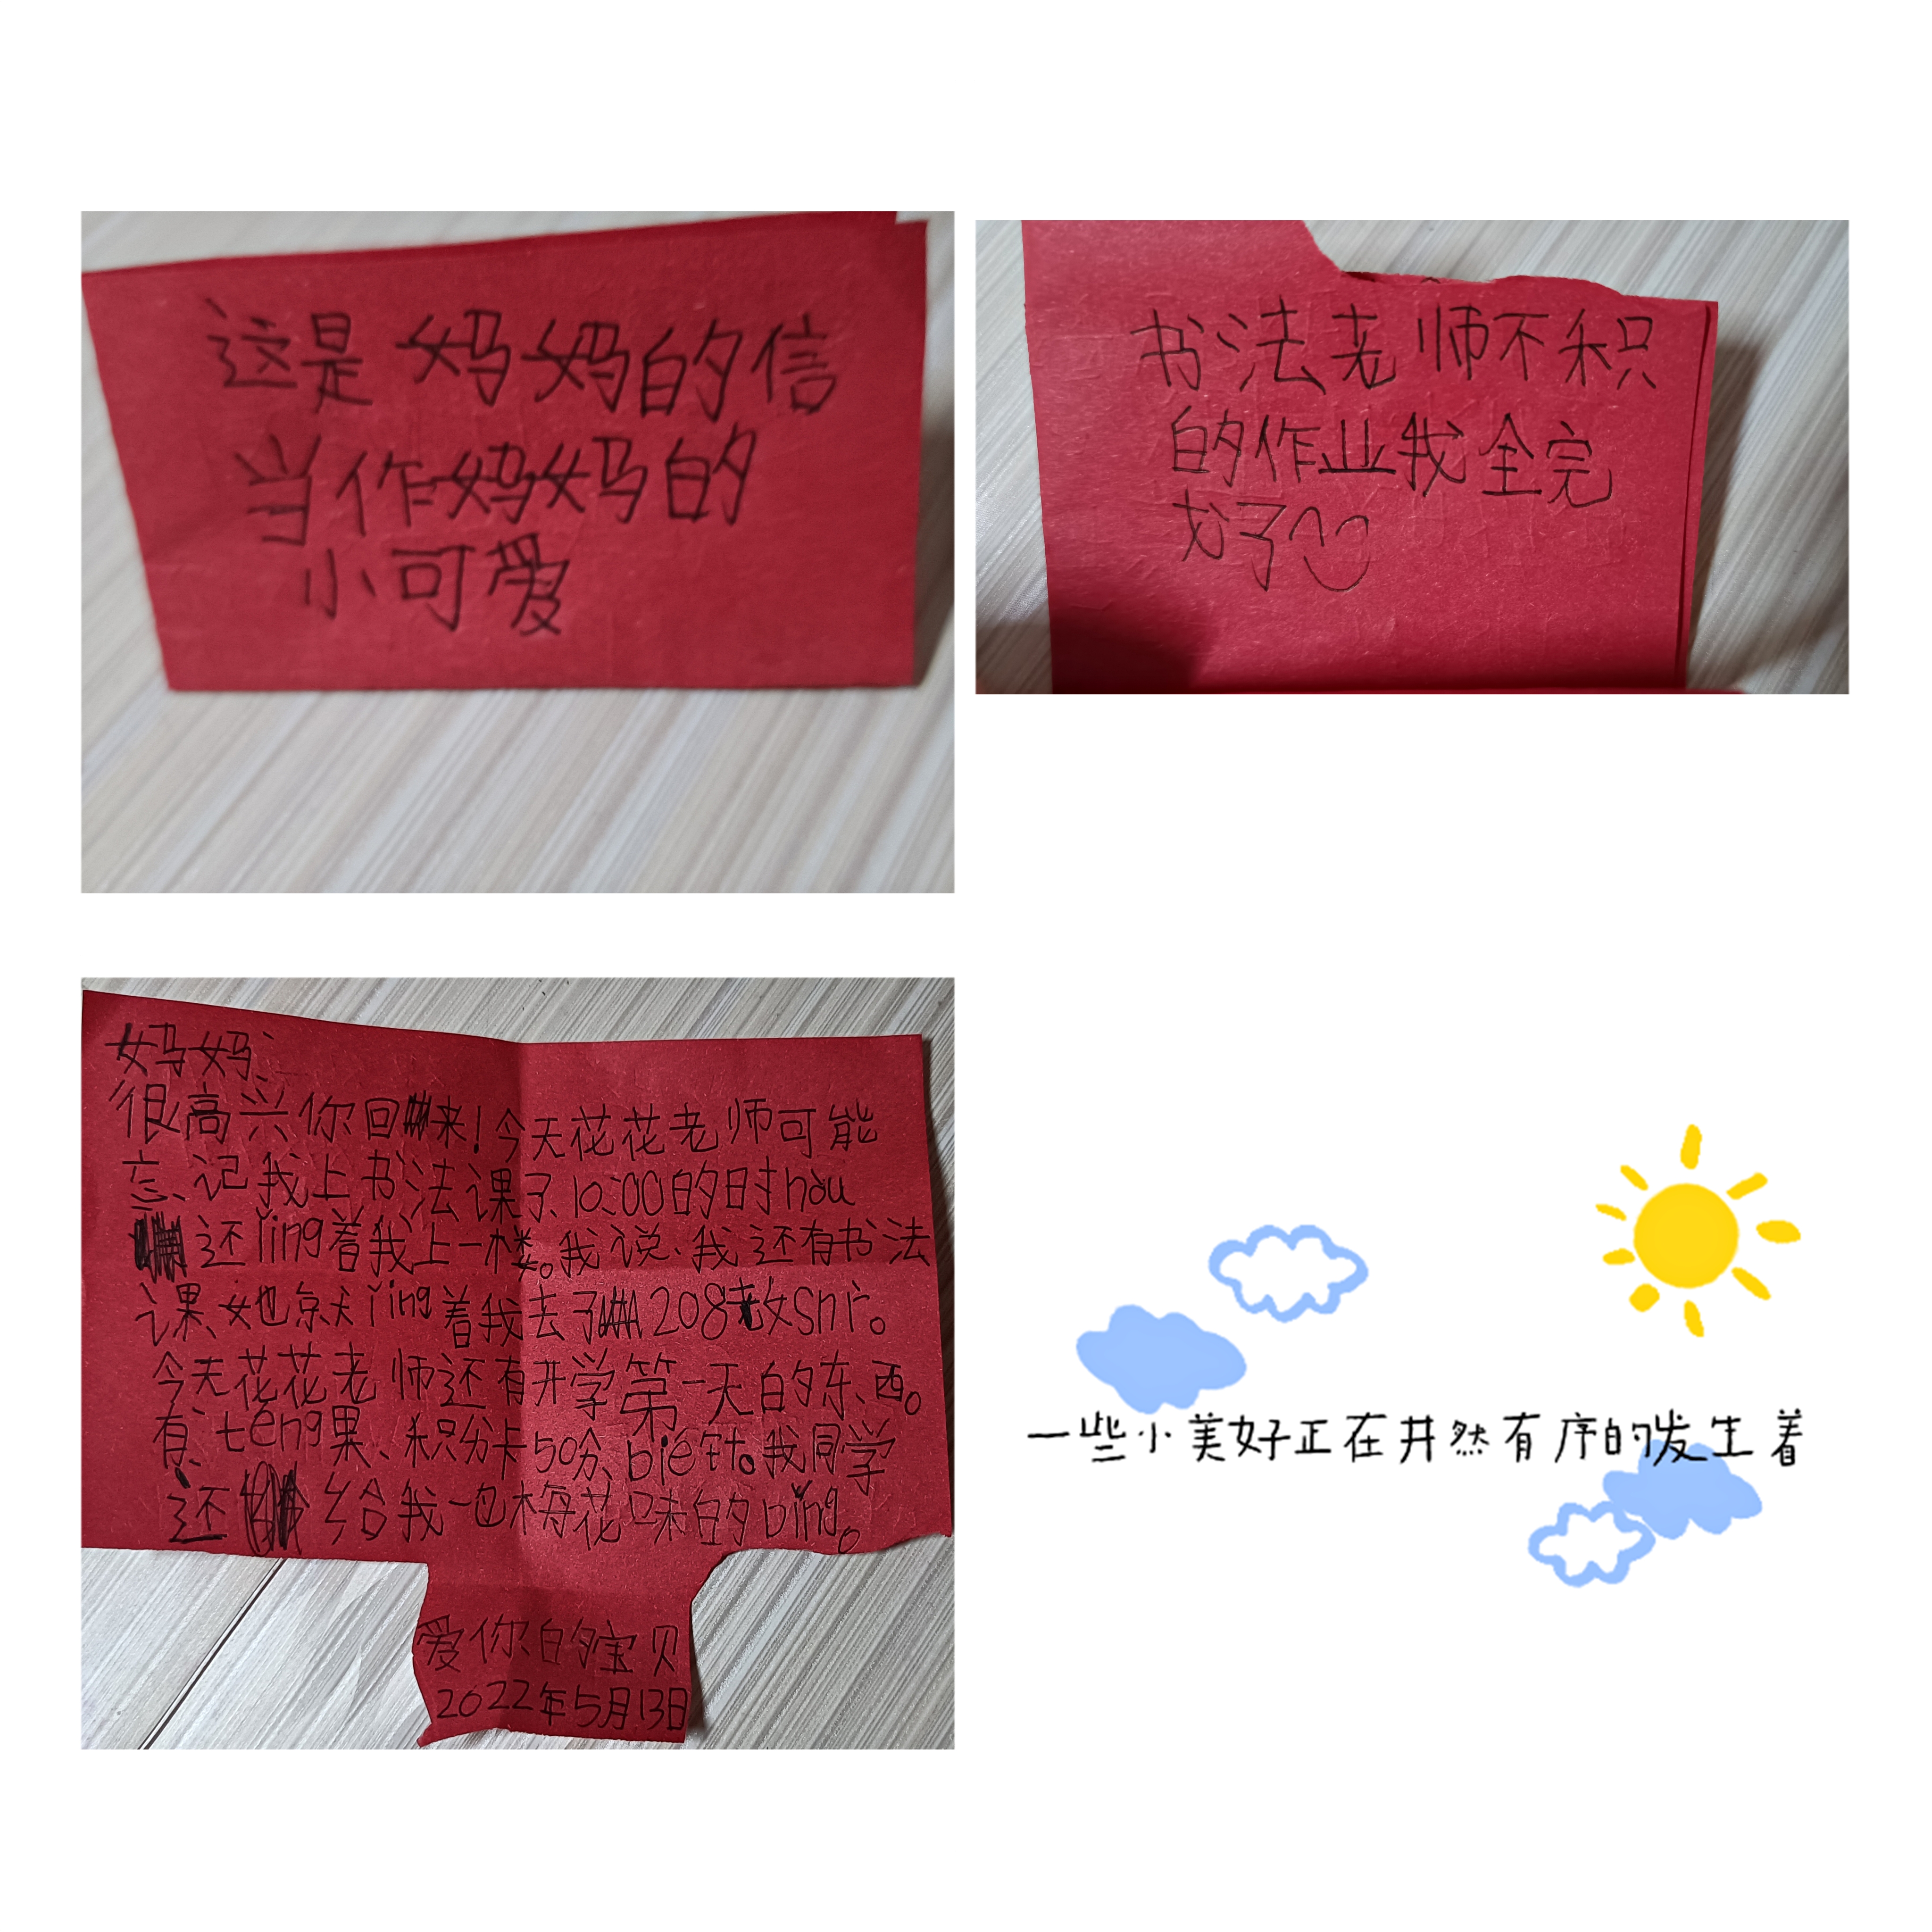 这是妈妈的信
当作妈妈的
小可爱
书法老师不积
的作业我全完
好了
妈妈:
很高兴你回来!今天花花老师可能
忘记我上书法课了、10:00的时hòu
还lǐng着我上一楼。我说、我还有书法
课、她就lǐng着我去了208教shì。
今天花花老师还有开学第一天的东西。
有:téng果、积分卡50分、bié针。我同学
还给我一包梅花味的bǐng。
爱你的宝贝
2022年5月13日
一些小美好正在井然有序的发生着